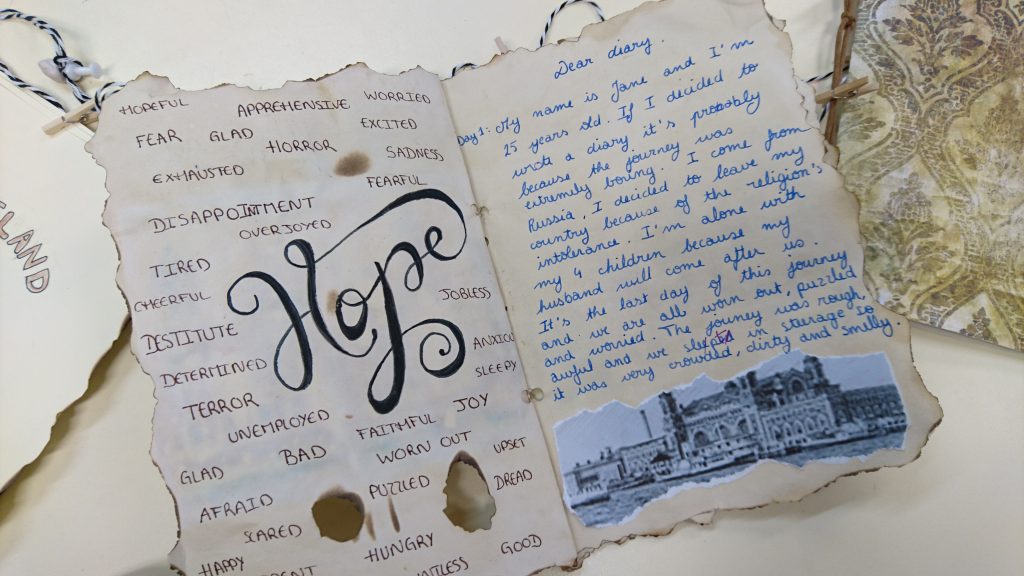 LAND
HOPEFUL APPREHENSIVE WORRIED
FEAR GLAD EXCITED
HORROR SADNESS
EXHAUSTED
FEARFUL
DISAPPOINTMENT
OVERJOYED
TIRED
CHEERFUL JOBLESS
Hope
DESTITUTE ANXIOU
DETERMINED SLEEPY
TERROR JOY
UNEMPLOYED FAITHFUL
GLAD BAD WORN OUT UPSET
AFRAID PUZZLED DREAD
SCARED
HAPPY HUNGRY GOOD
Dear diary.
Day 1: My name is Jane and I'm
25 years old. If I decided to
wrote a diary it's probably
because the journey was
extremily boring. I come from
Russia, I decided to leave my
country because of the religion's
intolerance. I'm alone with
my 4 children because my
husband will come after us.
It's the last day of this journey
and we are all worn out, puzzled
and worried. The journey was rough,
awful and we in sterage so
it was very crowded, dirty and smelly.